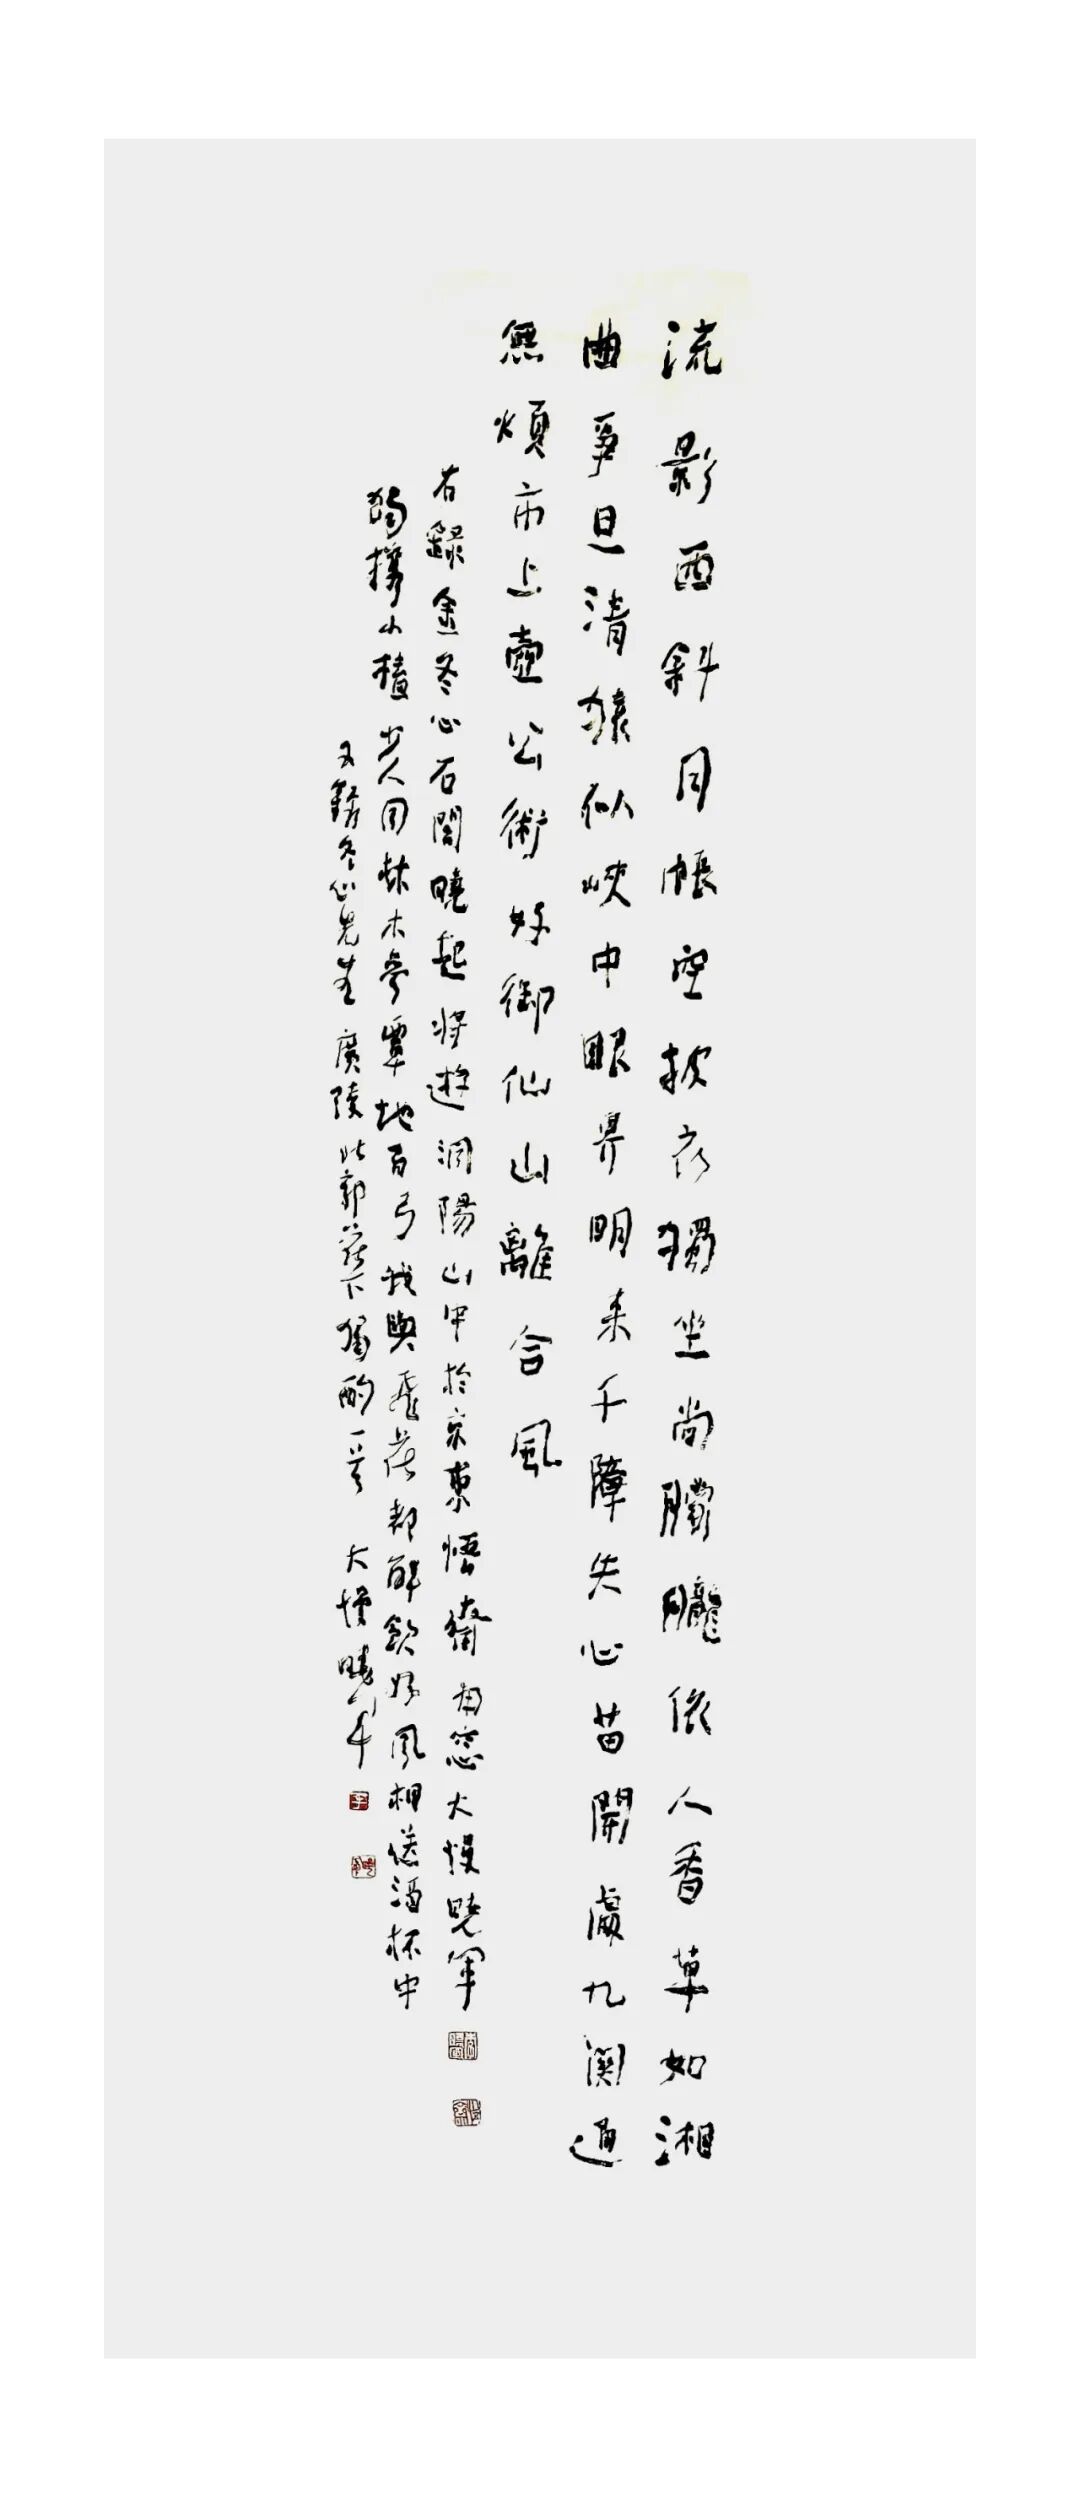 流影西斜月帳空披衣獨坐尚朦朧依人香草如湘
曲爭旦清猿似峽中眼界明来千障失心苗開處九関通
無煩市上壺公術好御仙山離合風
右録金冬心石閭曉起將遊洞陽山中於京東悟齋南窓大慢曉軍
獨攜小榼少人同林木夸覃地百弓我與飛花都解飲好風相送酒杯中
又録冬心先生廣陵北郭下獨酌一首 大慢曉軍